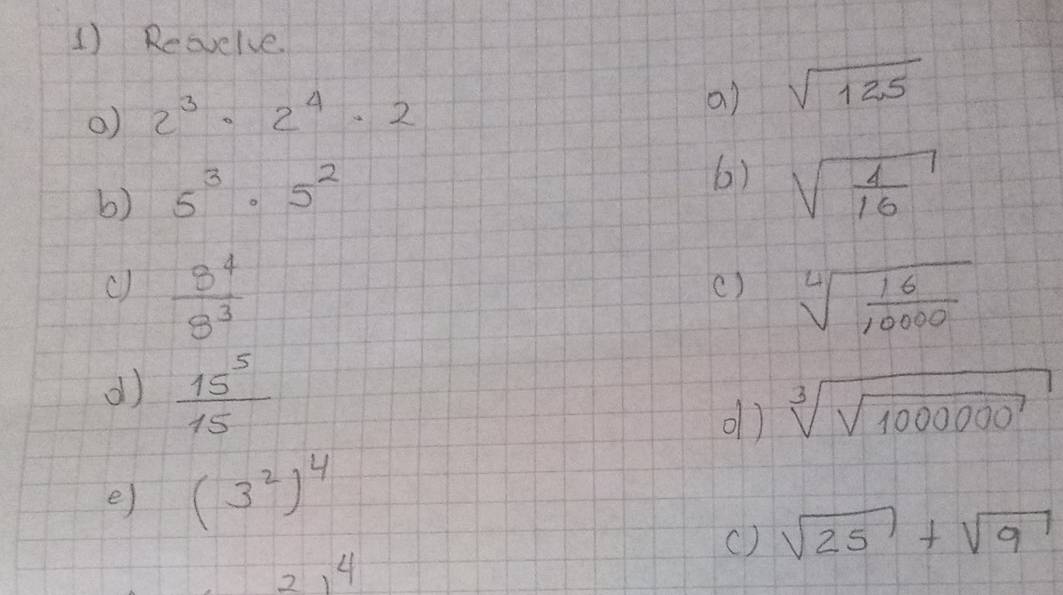 1) Resuelve.
a) 2³ · 2⁴ · 2
b) 5³ · 5²
c) 8⁴/8³
d) 15⁵/15
e) (3²)⁴
2)⁴
a) √125
b) √(4/16)
c) ∜(16/10000)
d) ∛√1000000
c) √25 + √9